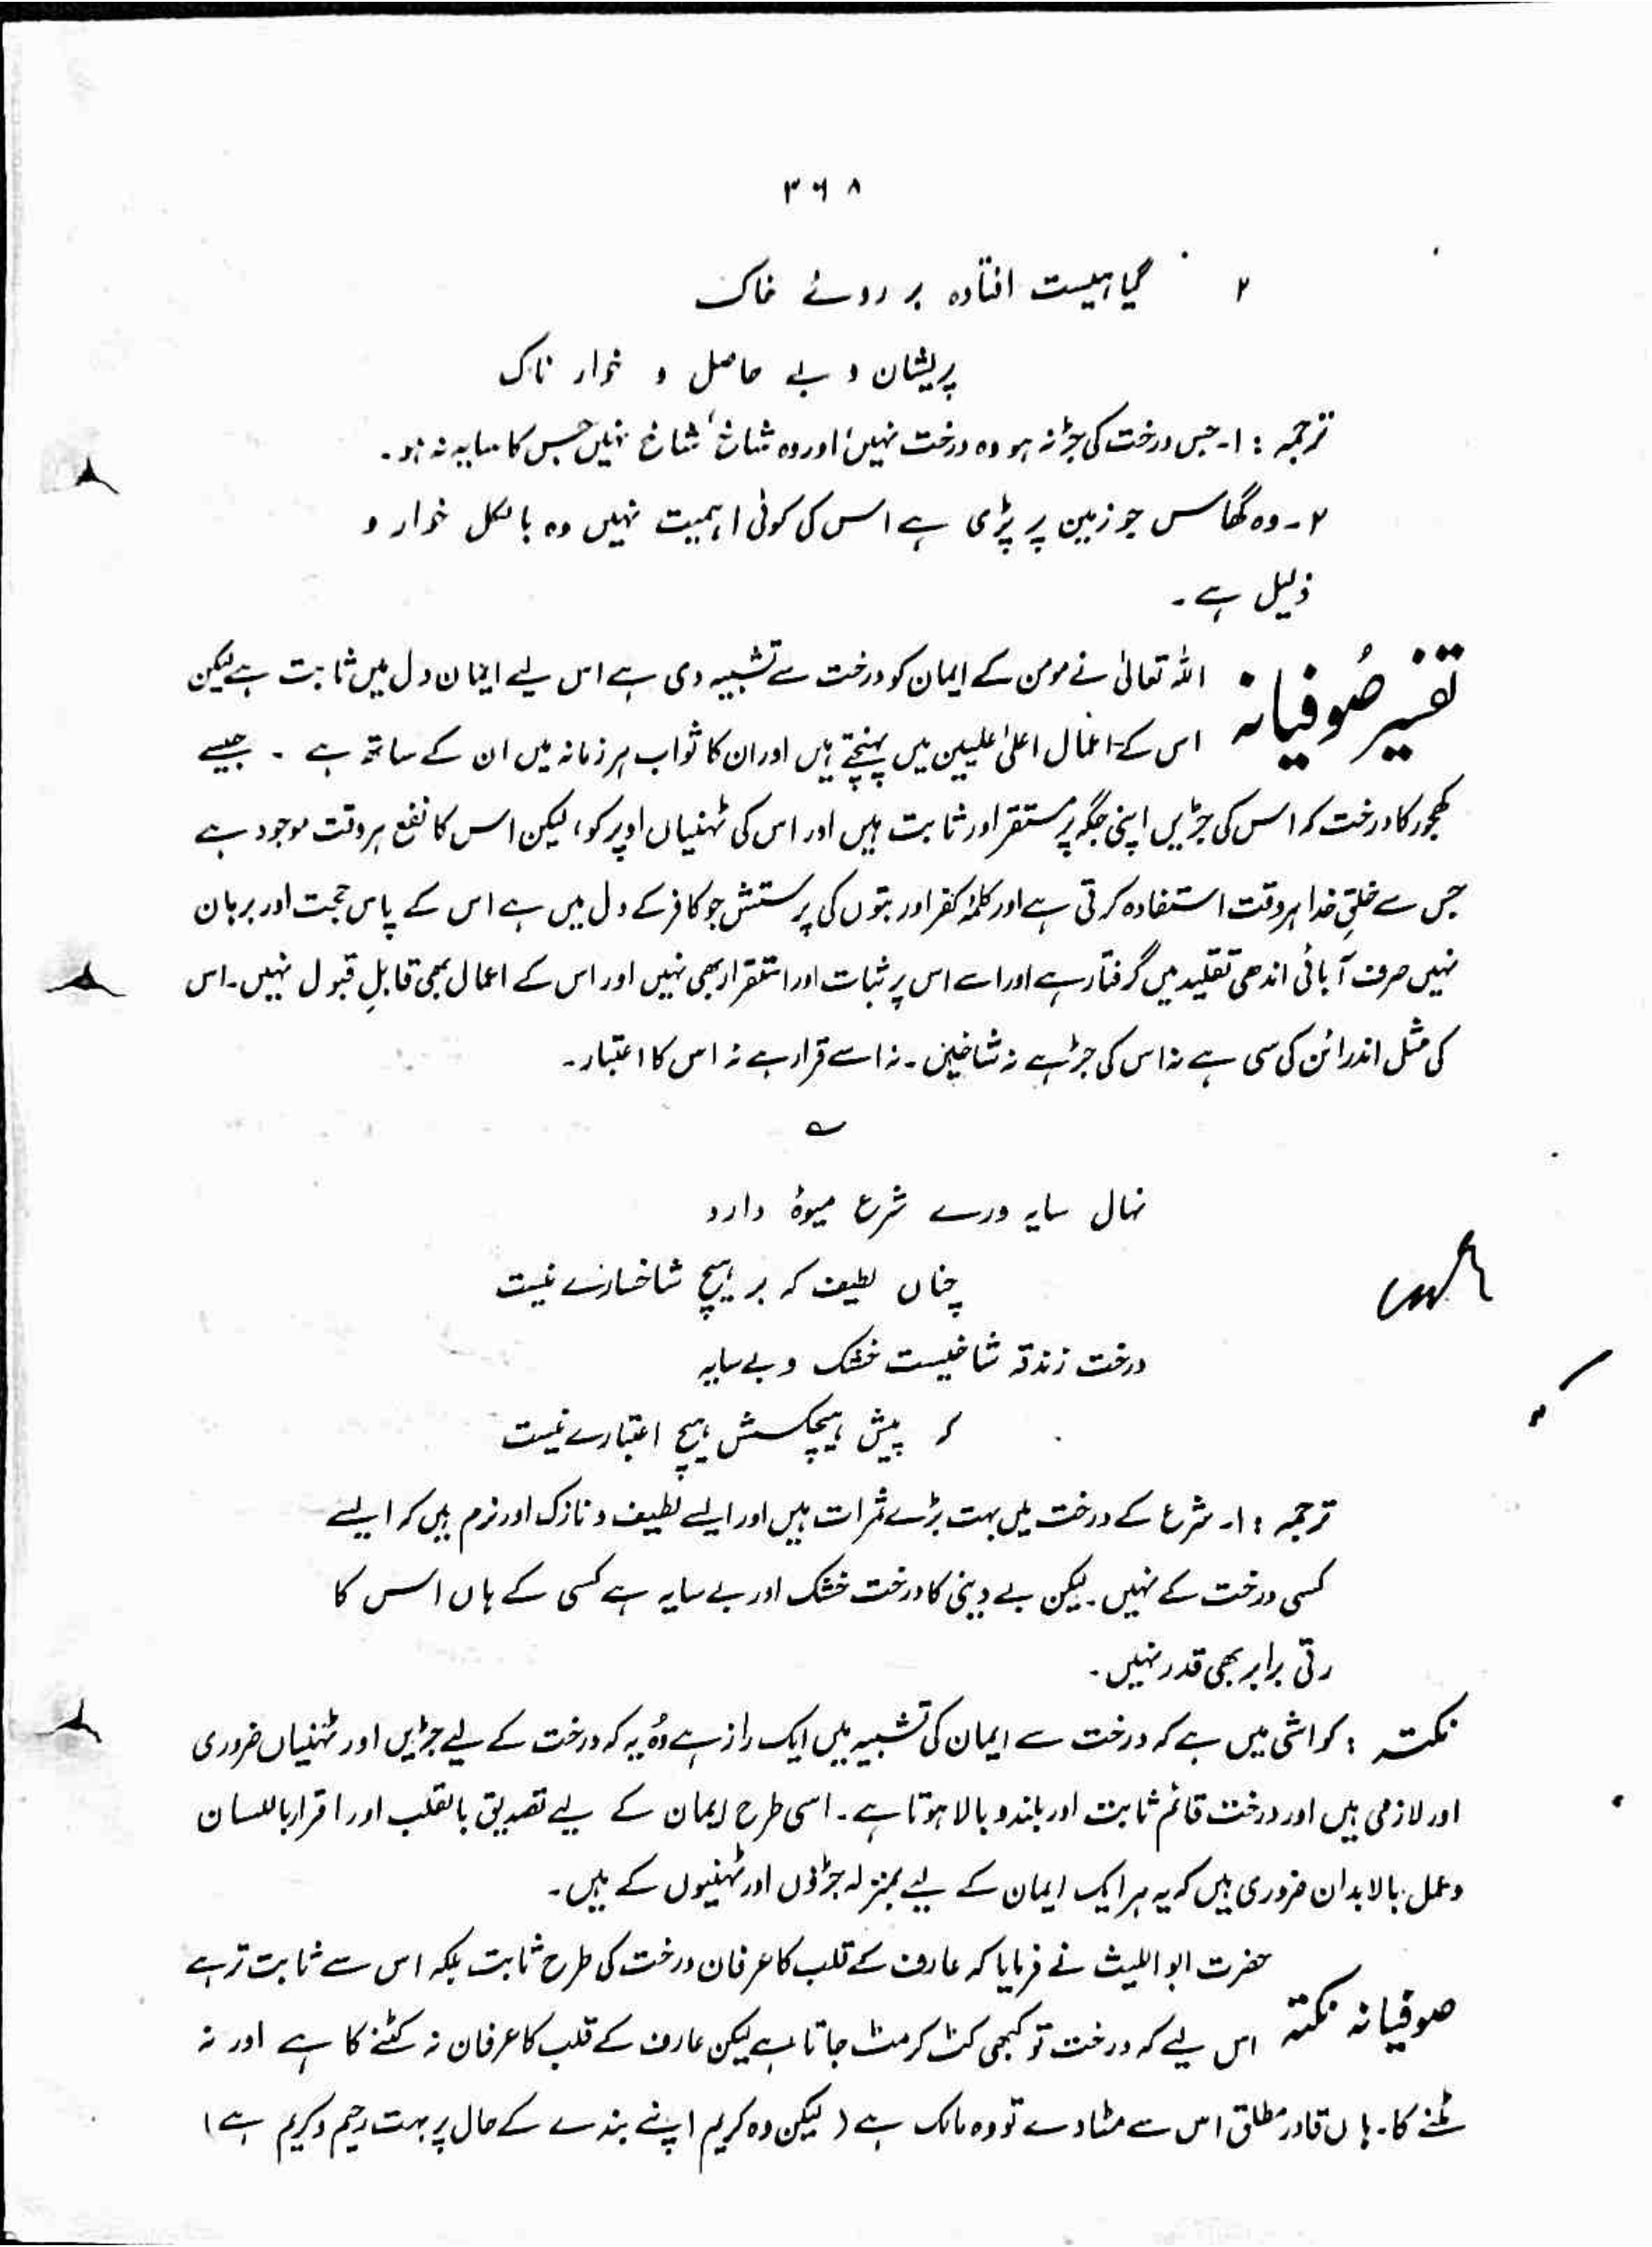 ۳۶۸
۲ گیاہیست افتادہ بر روئے خاک
پریشان و بے حاصل و خوار ناک
ترجمہ : ۱۔ جس درخت کی جڑ نہ ہو وہ درخت نہیں اور وہ شاخ، شاخ نہیں جس کا سایہ نہ ہو۔
۲۔ وہ گھاس جو زمین پر پڑی ہے اس کی کوئی اہمیت نہیں وہ بالکل خوار و
ذلیل ہے۔
تفسیر صُوفیانہ اللہ تعالیٰ نے مومن کے ایمان کو درخت سے تشبیہ دی ہے اس لیے ایمان دل میں ثابت ہے لیکن
اس کے اعمال اعلیٰ علیین میں پہنچتے ہیں اور ان کا ثواب ہر زمانہ میں ان کے ساتھ ہے ۔ جیسے
کھجور کا درخت کہ اس کی جڑیں اپنی جگہ پر مستقر اور ثابت ہیں اور اس کی ٹہنیاں اوپر کو، لیکن اس کا نفع ہر وقت موجود ہے
جس سے خلقِ خدا ہر وقت استفادہ کرتی ہے اور کلمۂ کفر اور بتوں کی پرستش جو کافر کے دل میں ہے اس کے پاس حجت اور برہان
نہیں صرف آبائی اندھی تقلید میں گرفتار ہے اور اسے اس پر ثبات اور استقرار بھی نہیں اور اس کے اعمال بھی قابلِ قبول نہیں۔ اس
کی مثل اندرائن کی سی ہے نہ اس کی جڑ ہے نہ شاخیں۔ نہ اسے قرار ہے نہ اس کا اعتبار۔
؎
نہال سایہ ورے شرع میوۂ دارد
چناں لطیف کہ بر ہیچ شاخسارے نیست
درخت زندقہ شاخیست خشک و بے سایہ
کہ پیش ہیچکسش ہیچ اعتبارے نیست
ترجمہ : ۱۔ شرع کے درخت میں بہت بڑے ثمرات ہیں اور ایسے لطیف و نازک اور نرم ہیں کہ ایسے
کسی درخت کے نہیں۔ لیکن بے دینی کا درخت خشک اور بے سایہ ہے کسی کے ہاں اس کا
رتی برابر بھی قدر نہیں۔
نکتہ : کواشی میں ہے کہ درخت سے ایمان کی تشبیہ میں ایک راز ہے وُہ یہ کہ درخت کے لیے جڑیں اور ٹہنیاں ضروری
اور لازمی ہیں اور درخت قائم ثابت اور بلند و بالا ہوتا ہے۔ اسی طرح ایمان کے لیے تصدیق بالقلب اور اقرار باللسان
و عمل بالابدان ضروری ہیں کہ یہ ہر ایک ایمان کے لیے بمنزلہ جڑوں اور ٹہنیوں کے ہیں۔
حضرت ابو اللیث نے فرمایا کہ عارف کے قلب کا عرفان درخت کی طرح ثابت بلکہ اس سے ثابت تر ہے
صوفیانہ نکتہ اس لیے کہ درخت تو کبھی کٹ کر مٹ جاتا ہے لیکن عارف کے قلب کا عرفان نہ کٹنے کا ہے اور نہ
مٹنے کا۔ ہاں قادر مطلق اس سے مٹا دے تو وہ مالک ہے (لیکن وہ کریم اپنے بندے کے حال پر بہت رحیم و کریم ہے)